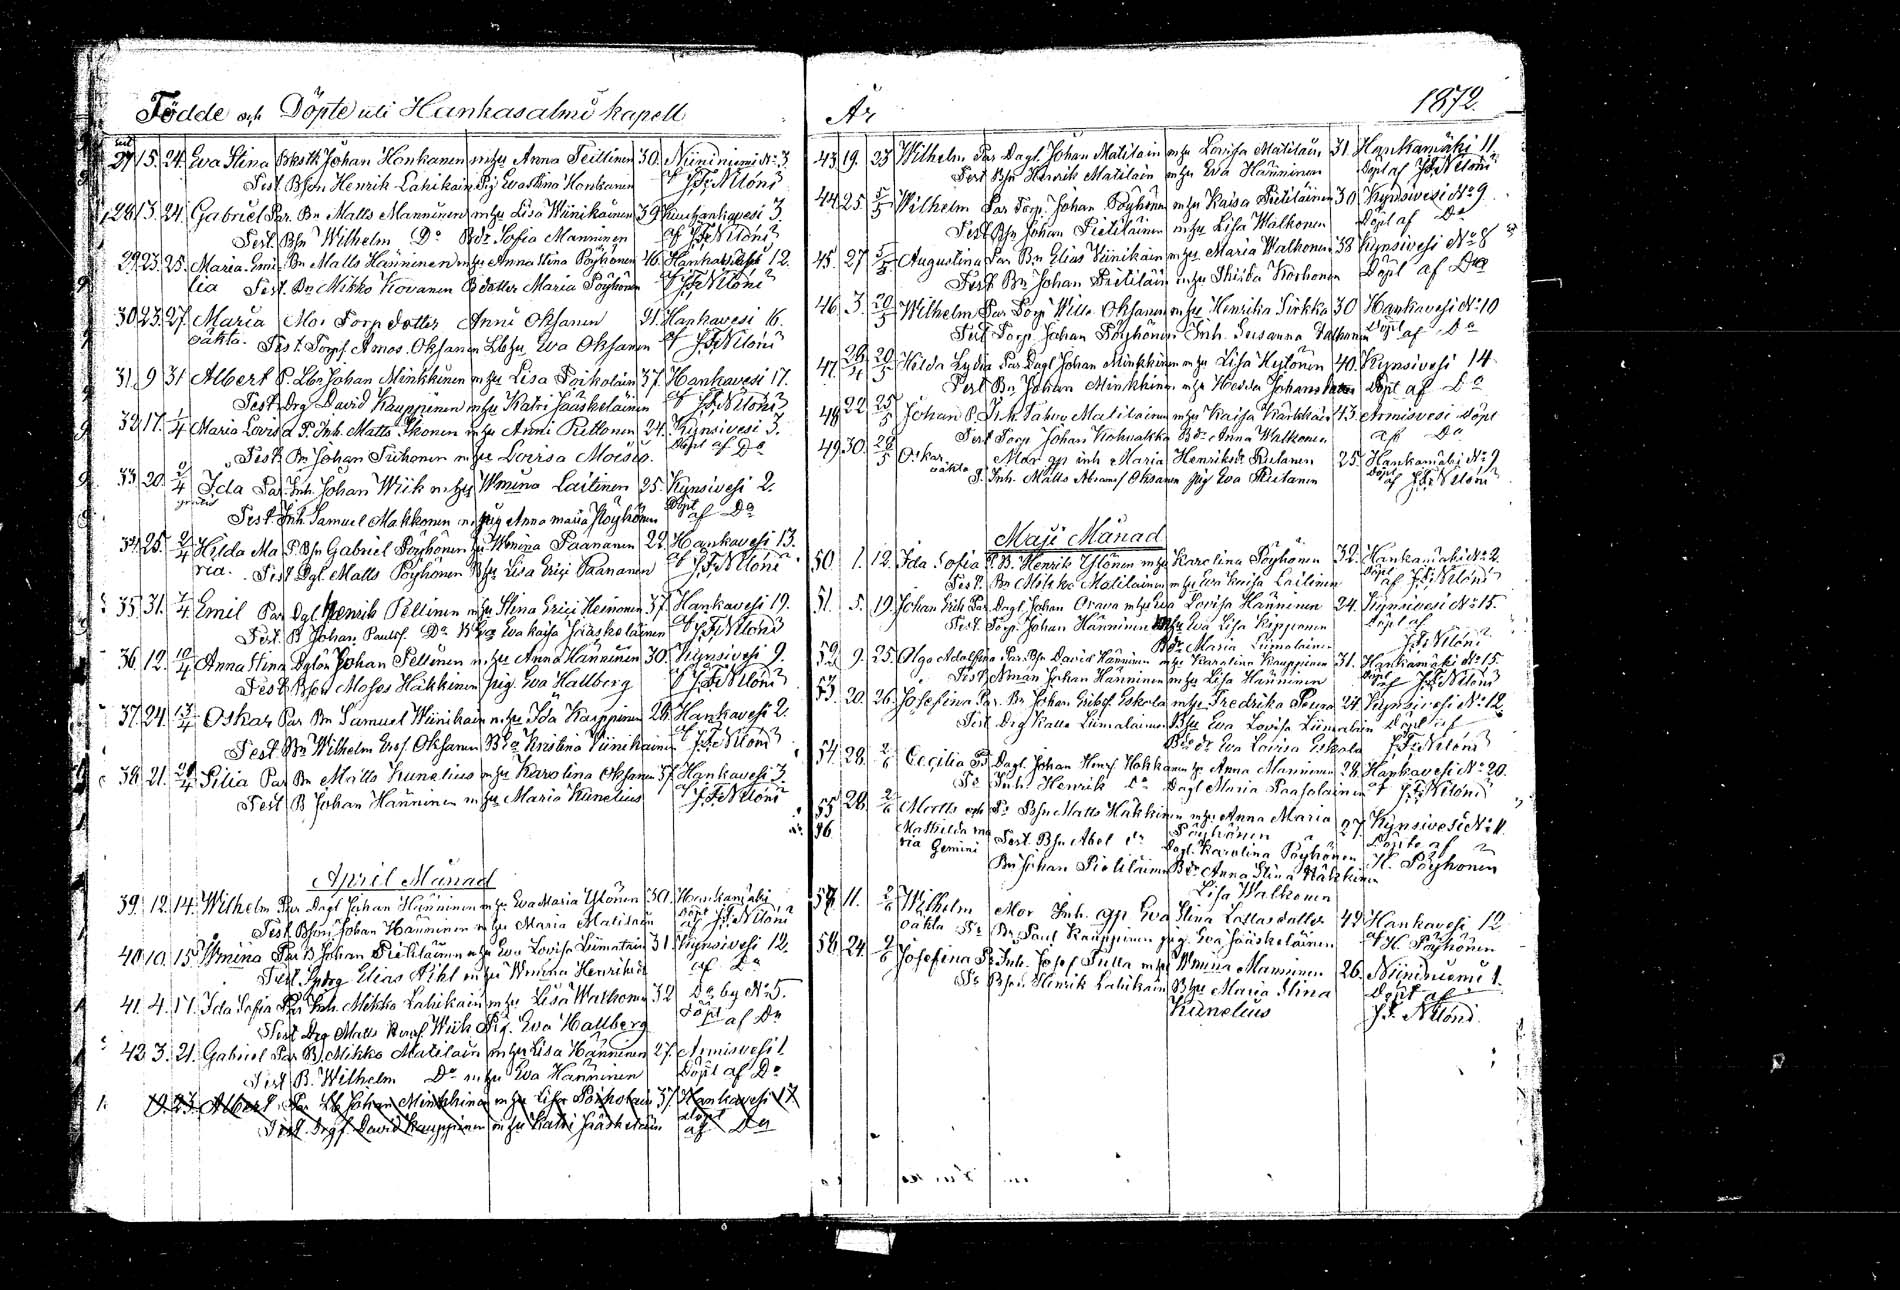 Födde och Döpte uti Hankasalmi kapell
27 15. 24. Eva Stina Johan Honkanen m hu Anna Teittinen 30. Niininiemi No 3.
Test. Bson Henrik Lahikain Pig Eva Stina Honkanen af J. F. Niloni
28 13. 24. Gabriel Par. Bn Matts Manninen m hu Lisa Wiinikainen 39 3.
Test. Bsn Wilhelm Do Bdr Sofia Manninen af J. F. Niloni
29. 23. 25. Maria Emi- Bn Matts Hänninen m hu Anna Stina Pöyhönen 46. Hankavesi 12.
lia Test. Bn Mikko Kovanen B dotter Maria Pöyhönen af J. F. Niloni
30 23. 27. Maria Mor Torp dotter Anni Oksanen 21. Hankavesi 16.
oäkta. Test. Torpf. Amos Oksanen Eva Oksanen af J. F. Niloni
31. 9 31 Albert P. Lbn Johan Minkkinen m hu Lisa Poikolain 37. Hankavesi 17.
Test. Drg David Kauppinen m hu Katri Jääskeläinen af J. F. Niloni
32 17. 1/4 Maria Lovisa P. Inh. Matts Ikonen m hu Anni Puttonen 24. Kynsivesi 3.
Test. Bn Johan Tiihonen m hu Lovisa Moisio. Döpt af Do
33 20. 2/4 Ida Par Inh. Johan Wiik m hu Wmina Laitinen 25. Kynsivesi 2.
Test. Inh Samuel Makkonen pig Anna Maria Pöyhönen Döpt af Do
34 25. 2/4 Hilda Ma P. Bsn Gabriel Pöyhönen hu Wmina Paananen 22. Hankavesi 13.
ria. Test Dgl. Matts Pöyhönen Lisa Paananen af J. F. Niloni
35. 31. 7/4 Emil Par Dgl Henrik Pellinen m hu Stina Heinonen 37. Hankavesi 19.
Test. B Johan Paulsf Do Eva Kaisa Jääskeläinen af J. F. Niloni
36. 12. 10/4 Anna Stina Johan Pellinen m hu Anna Hänninen 30. Kynsivesi 9.
Test Bson Moses Häkkinen pig. Eva Hallberg af J. F. Niloni
37. 24. 13/4 Oskar Par Bn Samuel Wiinikain m hu Ida Kauppinen 26. Hankavesi 2.
Test Bn Wilhelm Oksanen Kristina Wiinikainen af J. F. Niloni
38. 21. Silia Par Bn Matts Kunelius m hu Karolina Oksanen 37. Hankavesi 3.
Test B Johan Hänninen m hu Maria Kunelius af J. F. Niloni
April Månad
39. 12. 14. Wilhelm Par Dagl Johan Hänninen m hu Eva Maria Ylönen 30. Hankamäki
Test. Bson Johan Hänninen m hu Maria Matilain Döpt af J. F. Niloni
40 10. 15 Wmina Par B Johan Pietiläinen m hu Eva Lovisa Liimatain 31. Kynsivesi 12.
Test. Elias Pihl m hu Wmina Henriksd af Do
41. 4. 17. Ida Sofia Par Inh. Mikko Lahikain m hu Lisa Walkonen 32 Do by No 5.
Test Drg Matts Wiik Pig. Eva Hallberg Döpt af Do
42 3. 21. Gabriel Par B. Mikko Matilain m hu Lisa Hänninen 27. Armisvesi 1.
Test B. Wilhelm Do m hu Eva Hänninen Döpt af Do
9. 23. Albert Par Lb Johan Minkkinen m hu Lisa Poikolain 37. Hankavesi 17
Test. Drgf. David Kauppinen m hu Katri Jääskeläin Döpt af Do
År 1872.
43 19. 23 Wilhelm Par Dagl Johan Matilain m hu Lovisa Matilain 31 Hankamäki 11.
Test Bsn Henrik Matilain m hu Eva Hänninen Döpt af J. F. Niloni
44. 25. 5/5 Wilhelm Par Torp. Johan Pöyhönen m hu Kaisa Pietiläinen 30 Kynsivesi No 9
Test Bn Johan Pietiläinen m hu Lisa Walkonen Döpt af Do
45. 27 5/5 Augustina Par Bn Elias Viinikain m hu Maria Walkonen 38 Kynsivesi No 8
Test Bn Johan Pietiläin m hu Korhonen Döpt af Do
46. 3. 20/5 Wilhelm Par Torp Wille Oksanen m hu Henrika Sirkka 30 Hankavesi No 10
Test Torp. Johan Pöyhönen Inh. Susanna Walkonen Döpt af Do
47. 20/5 Hilda Lydia Par Dagl Johan Minkkinen m hu Lisa Hytönen 40. Kynsivesi 14
Test Bn Johan Minkkinen m hu Hedda Döpt af Do
48 22. 25/5 Johan P. Inh Pahvo Matilainen m hu Kaisa 43. Armisvesi Döpt
Test Torp Johan Kohvakka Bdr Anna Walkonen af Do
49. 30. 28/5 Oskar Mor gp inh Maria Henriksdr Rutanen 25. Hankamäki No 9
oäkta Inh. Matts Oksanen pig Eva Rutanen Döpt af J. F. Niloni
Maji Månad
50. 1. 12. Ida Sofia P. B. Henrik Ylönen m hu Karolina Pöyhönen 32. Hankamäki No 2.
Test. Bn Mikko Matilainen m hu Eva Kaisa Laitinen Döpt af J. F. Niloni
51. 5. 19. Johan Erik Par Dagl. Johan Orava m hu Eva Lovisa Hänninen 24. Kynsivesi No 15.
Test. Torp. Johan Hänninen m hu Eva Lisa Kipponen Döpt af
Bdr Maria Liimatainen J. F. Niloni
52 9. 25. Olga Adolfina Par. Bsn David Hänninen m hu Karolina Kauppinen 31. Hankamäki No 15.
Test Johan Hänninen m hu Lisa Hänninen Döpt af J. F. Niloni
53. 20. 26. Josefina Par. Bn Johan Eskola m hu Fredrika Peura 24. Kynsivesi No 12.
Test Drg Kalle Liimatainen Eva Lovisa Liimatain Döpt af
Eva Lovisa Eskola J. F. Niloni
54 28. 2/6 Cecilia Dagl. Johan Hakkanen hu Anna Manninen 28. Hankavesi No 20.
Inh. Henrik Do Dagl Maria Paasolainen af J. F. Niloni
55 28. 2/6 Matts och Bsn Matts Häkkinen m hu Anna Maria 27. Kynsivesi No 11.
56 Mathilda Ma Test. Bsn Abel do Pöyhönen Döpte af
ria Gemini Dagl. Karolina Pöyhönen H. Pöyhönen
Bn Johan Pietiläinen Bdr Anna Stina Häkkinen
Lisa Walkonen
57. 11. 2/6 Wilhelm Mor Inh. gp Eva Stina dotter 42 Hankavesi 12
oäkta Bn Paul Kauppinen pig Eva Jääskeläinen af H. Pöyhönen
58 24. 2/6 Josefina Inh. Josef Tulla m hu Wmina Manninen 26. Niininiemi 1.
Bsn. Hinrik Lahikain Maria Stina Döpt af
Kunelius J. F. Niloni.